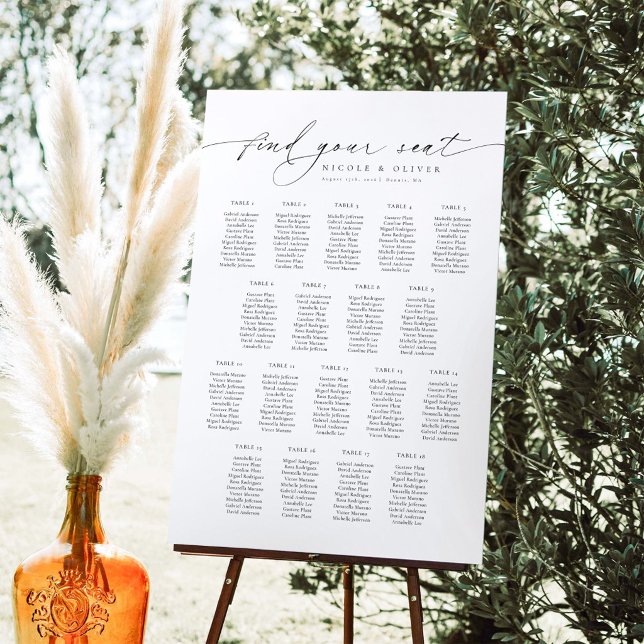 find your seat
NICOLE & OLIVER
August 17th, 2026 | Dennis, MA
TABLE 1
Gabriel Anderson
David Anderson
Annabelle Lee
Gustave Plant
Caroline Plant
Miguel Rodriguez
Rosa Rodriguez
Donatella Murano
Victor Murano
Michelle Jefferson
TABLE 2
Miguel Rodriguez
Rosa Rodriguez
Donatella Murano
Victor Murano
Michelle Jefferson
Gabriel Anderson
David Anderson
Annabelle Lee
Gustave Plant
Caroline Plant
TABLE 3
Michelle Jefferson
Gabriel Anderson
David Anderson
Annabelle Lee
Gustave Plant
Caroline Plant
Miguel Rodriguez
Rosa Rodriguez
Donatella Murano
Victor Murano
TABLE 4
Gustave Plant
Caroline Plant
Miguel Rodriguez
Rosa Rodriguez
Donatella Murano
Victor Murano
Michelle Jefferson
Gabriel Anderson
David Anderson
Annabelle Lee
TABLE 5
Michelle Jefferson
Gabriel Anderson
David Anderson
Annabelle Lee
Gustave Plant
Caroline Plant
Miguel Rodriguez
Rosa Rodriguez
Donatella Murano
Victor Murano
TABLE 6
Gustave Plant
Caroline Plant
Miguel Rodriguez
Rosa Rodriguez
Donatella Murano
Victor Murano
Michelle Jefferson
Gabriel Anderson
David Anderson
Annabelle Lee
TABLE 7
Gabriel Anderson
David Anderson
Annabelle Lee
Gustave Plant
Caroline Plant
Miguel Rodriguez
Rosa Rodriguez
Donatella Murano
Victor Murano
Michelle Jefferson
TABLE 8
Miguel Rodriguez
Rosa Rodriguez
Donatella Murano
Victor Murano
Michelle Jefferson
Gabriel Anderson
David Anderson
Annabelle Lee
Gustave Plant
Caroline Plant
TABLE 9
Annabelle Lee
Gustave Plant
Caroline Plant
Miguel Rodriguez
Rosa Rodriguez
Donatella Murano
Victor Murano
Michelle Jefferson
Gabriel Anderson
David Anderson
TABLE 10
Donatella Murano
Victor Murano
Michelle Jefferson
Gabriel Anderson
David Anderson
Annabelle Lee
Gustave Plant
Caroline Plant
Miguel Rodriguez
Rosa Rodriguez
TABLE 11
Michelle Jefferson
Gabriel Anderson
David Anderson
Annabelle Lee
Gustave Plant
Caroline Plant
Miguel Rodriguez
Rosa Rodriguez
Donatella Murano
Victor Murano
TABLE 12
Gustave Plant
Caroline Plant
Miguel Rodriguez
Rosa Rodriguez
Donatella Murano
Victor Murano
Michelle Jefferson
Gabriel Anderson
David Anderson
Annabelle Lee
TABLE 13
Michelle Jefferson
Gabriel Anderson
David Anderson
Annabelle Lee
Gustave Plant
Caroline Plant
Miguel Rodriguez
Rosa Rodriguez
Donatella Murano
Victor Murano
TABLE 14
Annabelle Lee
Gustave Plant
Caroline Plant
Miguel Rodriguez
Rosa Rodriguez
Donatella Murano
Victor Murano
Michelle Jefferson
Gabriel Anderson
David Anderson
TABLE 15
Annabelle Lee
Gustave Plant
Caroline Plant
Miguel Rodriguez
Rosa Rodriguez
Donatella Murano
Victor Murano
Michelle Jefferson
Gabriel Anderson
David Anderson
TABLE 16
Miguel Rodriguez
Rosa Rodriguez
Donatella Murano
Victor Murano
Michelle Jefferson
Gabriel Anderson
David Anderson
Annabelle Lee
Gustave Plant
Caroline Plant
TABLE 17
Gabriel Anderson
David Anderson
Annabelle Lee
Gustave Plant
Caroline Plant
Miguel Rodriguez
Rosa Rodriguez
Donatella Murano
Victor Murano
Michelle Jefferson
TABLE 18
Gustave Plant
Caroline Plant
Miguel Rodriguez
Rosa Rodriguez
Donatella Murano
Victor Murano
Michelle Jefferson
Gabriel Anderson
David Anderson
Annabelle Lee